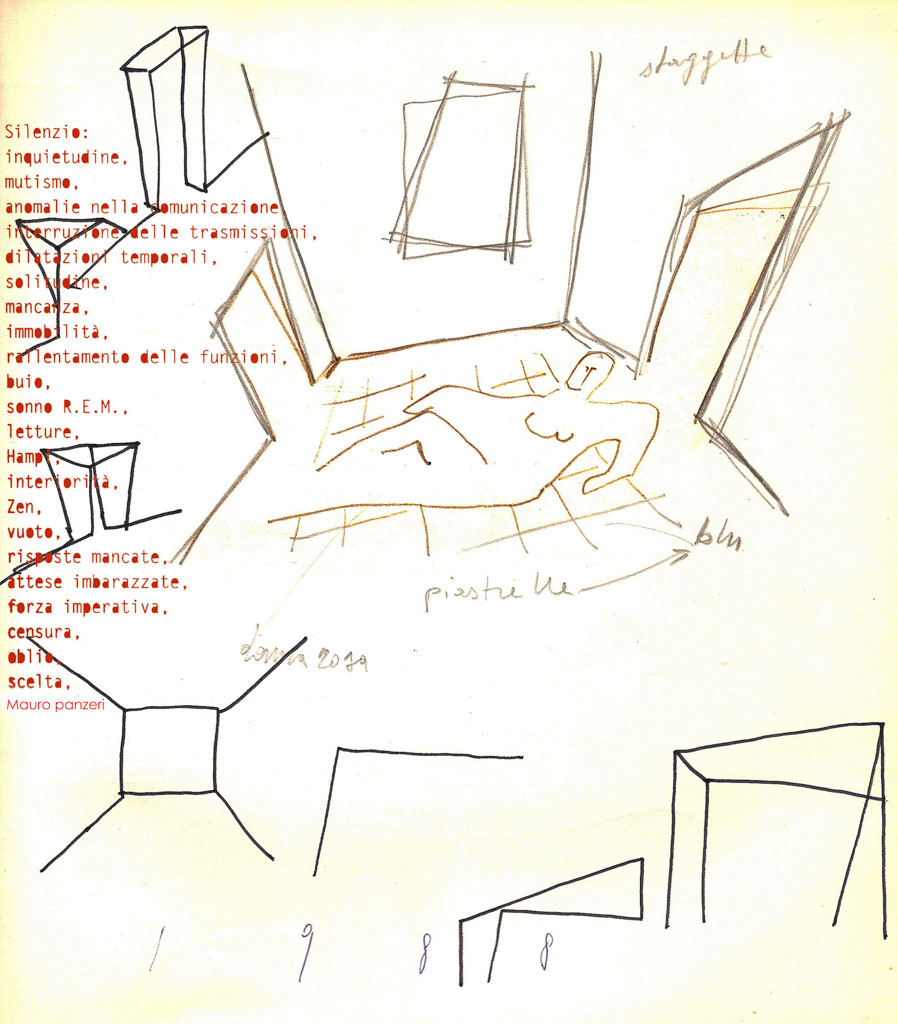 staggette
Silenzio:
inquietudine,
mutismo,
anomalie nella comunicazione,
interruzione delle trasmissioni,
dilatazioni temporali,
solitudine,
mancanza,
immobilità,
rallentamento delle funzioni,
buio,
sonno R.E.M.,
letture,
Hampl,
interiorità,
Zen,
vuoto,
risposte mancate,
attese imbarazzate,
forza imperativa,
censura,
oblio,
scelta,
Mauro panzeri
blu
piastrelle
1 9 8 8